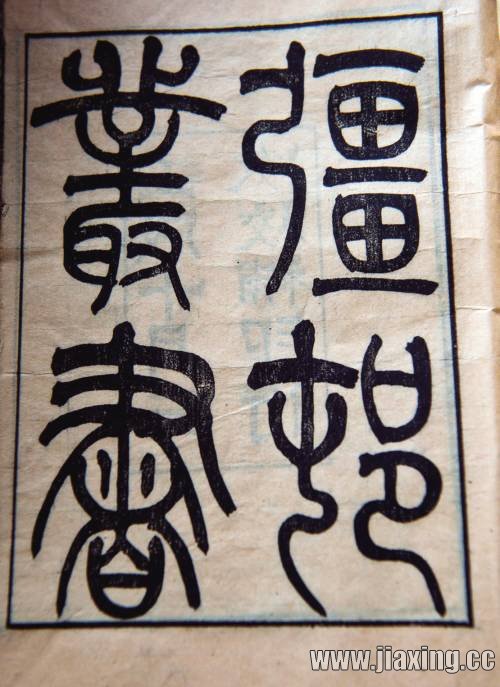 彊邨
叢書
www.jiaxing.cc